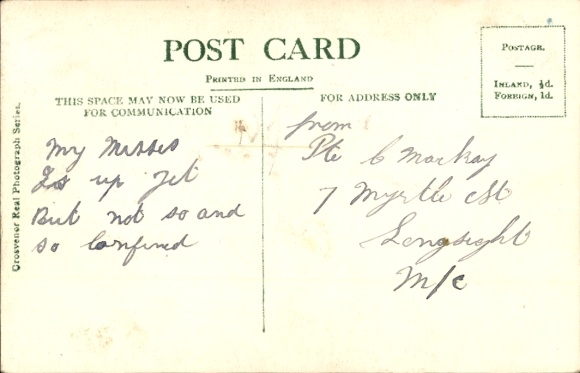 POST CARD
PRINTED IN ENGLAND
POSTAGE.
INLAND, ½d.
FOREIGN, 1d.
THIS SPACE MAY NOW BE USED
FOR COMMUNICATION
FOR ADDRESS ONLY
Grosvenor Real Photograph Series.
My
up yet
But not so and
so Confined
from
Pte C Markay
7 Myrtle St
Longsight
M/c